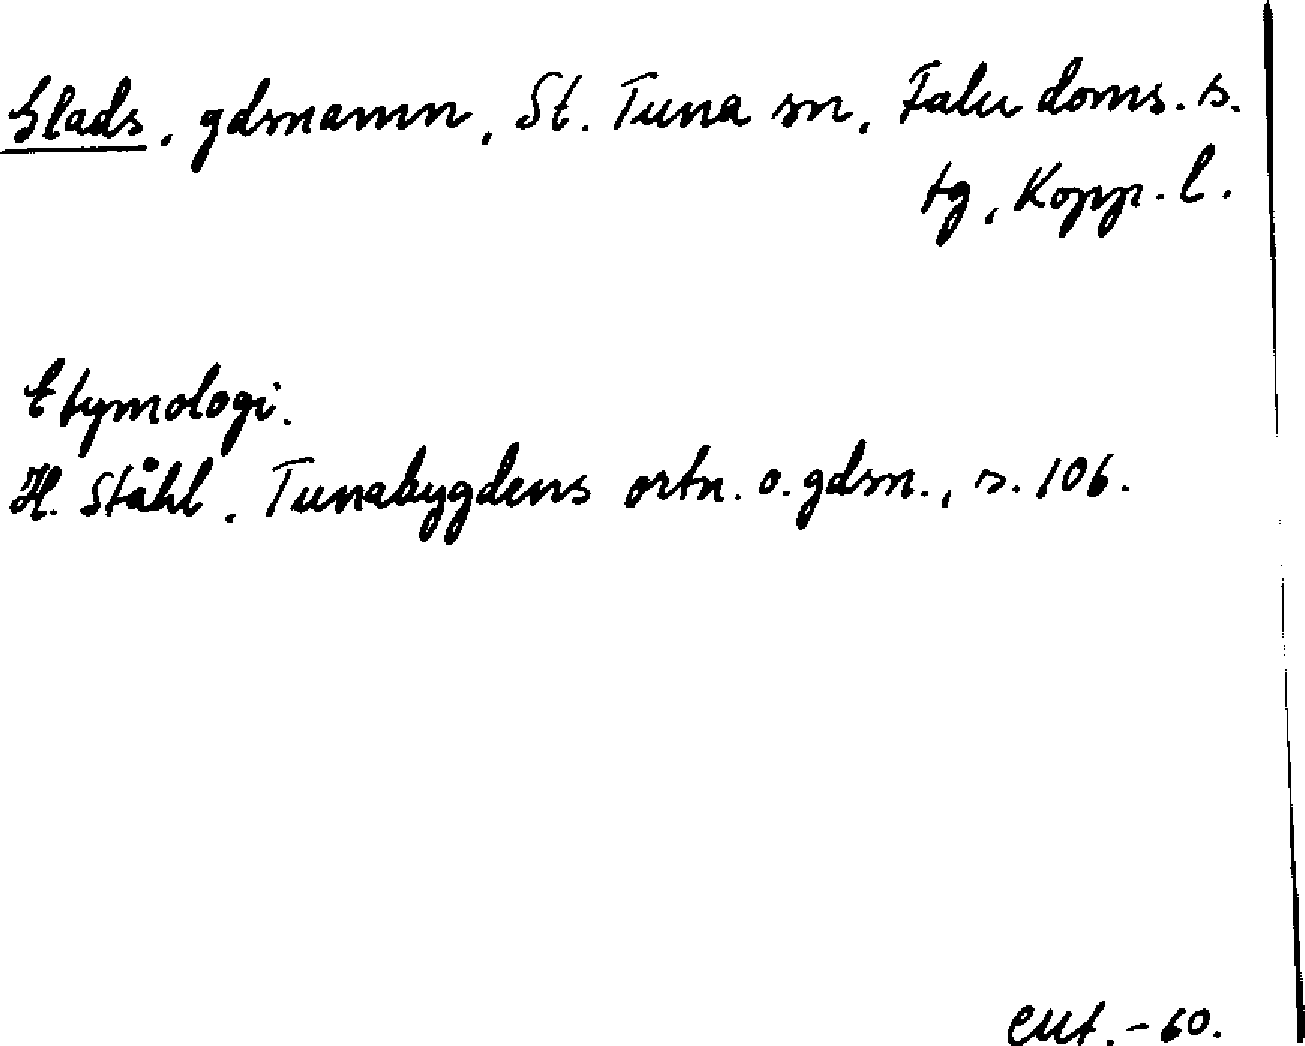 Glads, gdsnamn, St. Tuna sn, Falu doms. s.
tg, Kopp. l.
Etymologi.
H. Ståhl, Tunabygdens ortn. o. gdsn., s. 106.
-60.